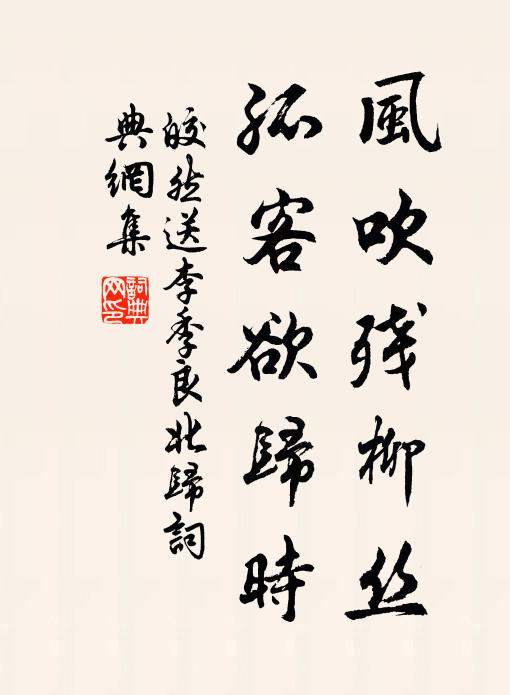 風吹残柳丝
孤客欲歸時
皎然送李季良北歸詞
典網集
詞典网印